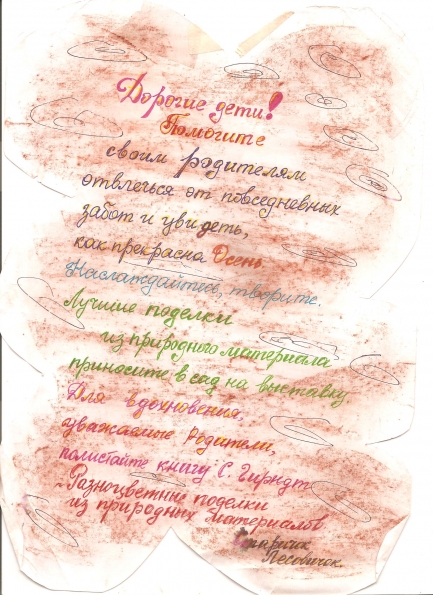 Дорогие дети!
Помогите
своим родителям
отвлечься от повседневных
забот и увидеть,
как прекрасна Осень.
Наслаждайтесь, творите.
Лучшие поделки
из природного материала
приносите в сад на выставку.
Для вдохновения,
уважаемые Родители,
полистайте книгу С. Гирндт
"Разноцветные поделки
из природных материалов
Старичок
Лесовичок.